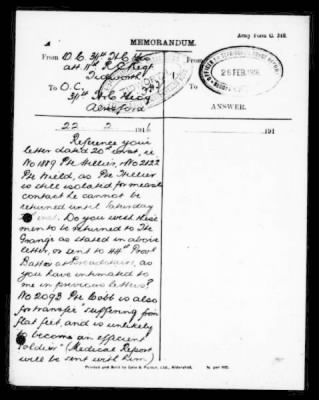 Army Form C. 348.
MEMORANDUM.
From O.C. 34th
att. 11th
Tidworth
To O.C.
34th
Alresford
ANSWER.
26 FEB 1916
22 2 1916
191
Reference your
letter dated 20th inst, re
No 1889 Pte Hillier, No 2122
Pte Weild, as Pte Hillier
is still isolated for measle
contact he cannot be
returned until Saturday
Do you wish these
men to be returned to The
Grange as stated in above
letter, or sent to 44th Provl
Battn as
you have intimated to
me in previous letters?
No 2093 Pte Cobb is also
for transfer "suffering from
flat feet, and is unlikely
to become an efficient
soldier" (Medical Report
will be sent with him)
Printed and Sold by Gale & Polden, Ltd., Aldershot.